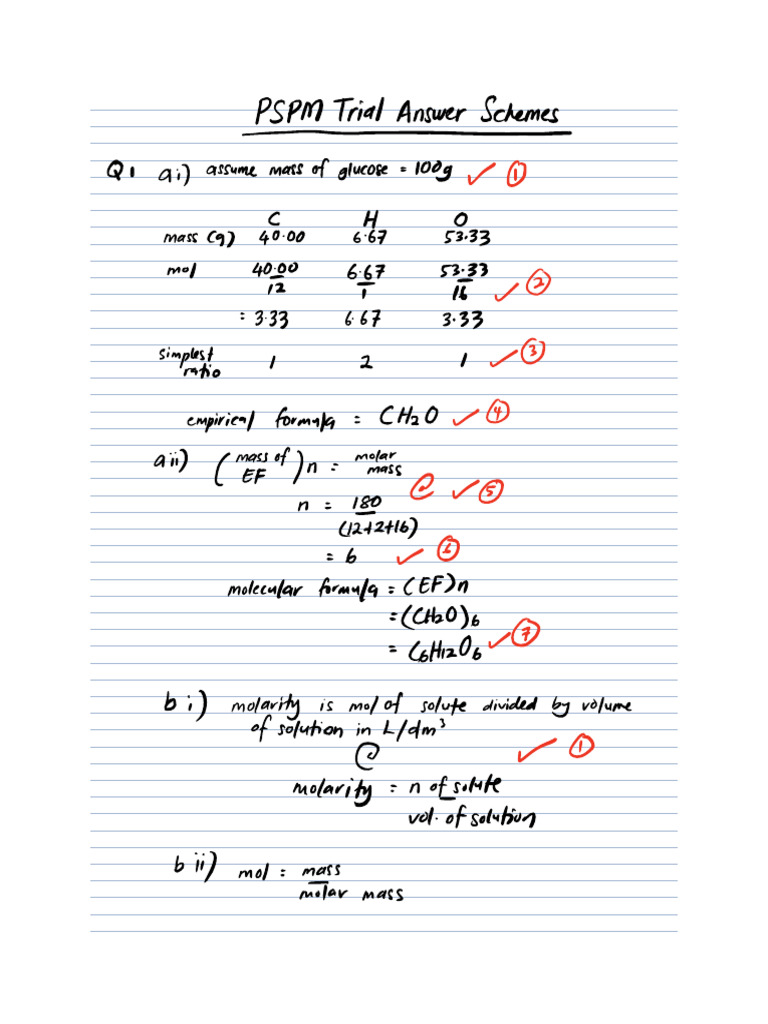 PSPM Trial Answer Schemes
Q1 ai) assume mass of glucose = 100g ✓ ①
C H O
mass (g) 40.00 6.67 53.33
mol 40.00/12 6.67/1 53.33/16 ✓ ②
= 3.33 6.67 3.33
simplest ratio 1 2 1 ✓ ③
empirical formula = CH2O ✓ ④
aii) (mass of EF)n = molar mass
@ ✓ ⑤
n = 180/(12+2+16)
= 6 ✓ ⑥
molecular formula = (EF)n
= (CH2O)6
= C6H12O6 ✓ ⑦
bi) molarity is mol of solute divided by volume
of solution in L/dm³
@ ✓ ①
molarity = n of solute/vol. of solution
bii) mol = mass/molar mass